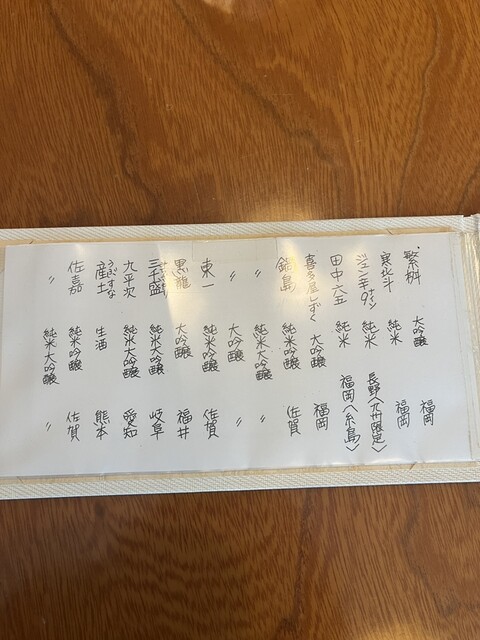 繁桝 大吟醸 福岡
寒北斗 純米 福岡
純米 長野〈九州限定〉
田中六五 純米 福岡〈糸島〉
喜多屋しずく 大吟醸 福岡
鍋島 純米吟醸 佐賀
〃 純米大吟醸 〃
〃 大吟醸 〃
東一 純米吟醸 佐賀
黒龍 大吟醸 福井
三千盛 純米大吟醸 岐阜
九平次 純米大吟醸 愛知
うぶすな
産土 生酒 熊本
佐嘉 純米吟醸 佐賀
〃 純米大吟醸 〃